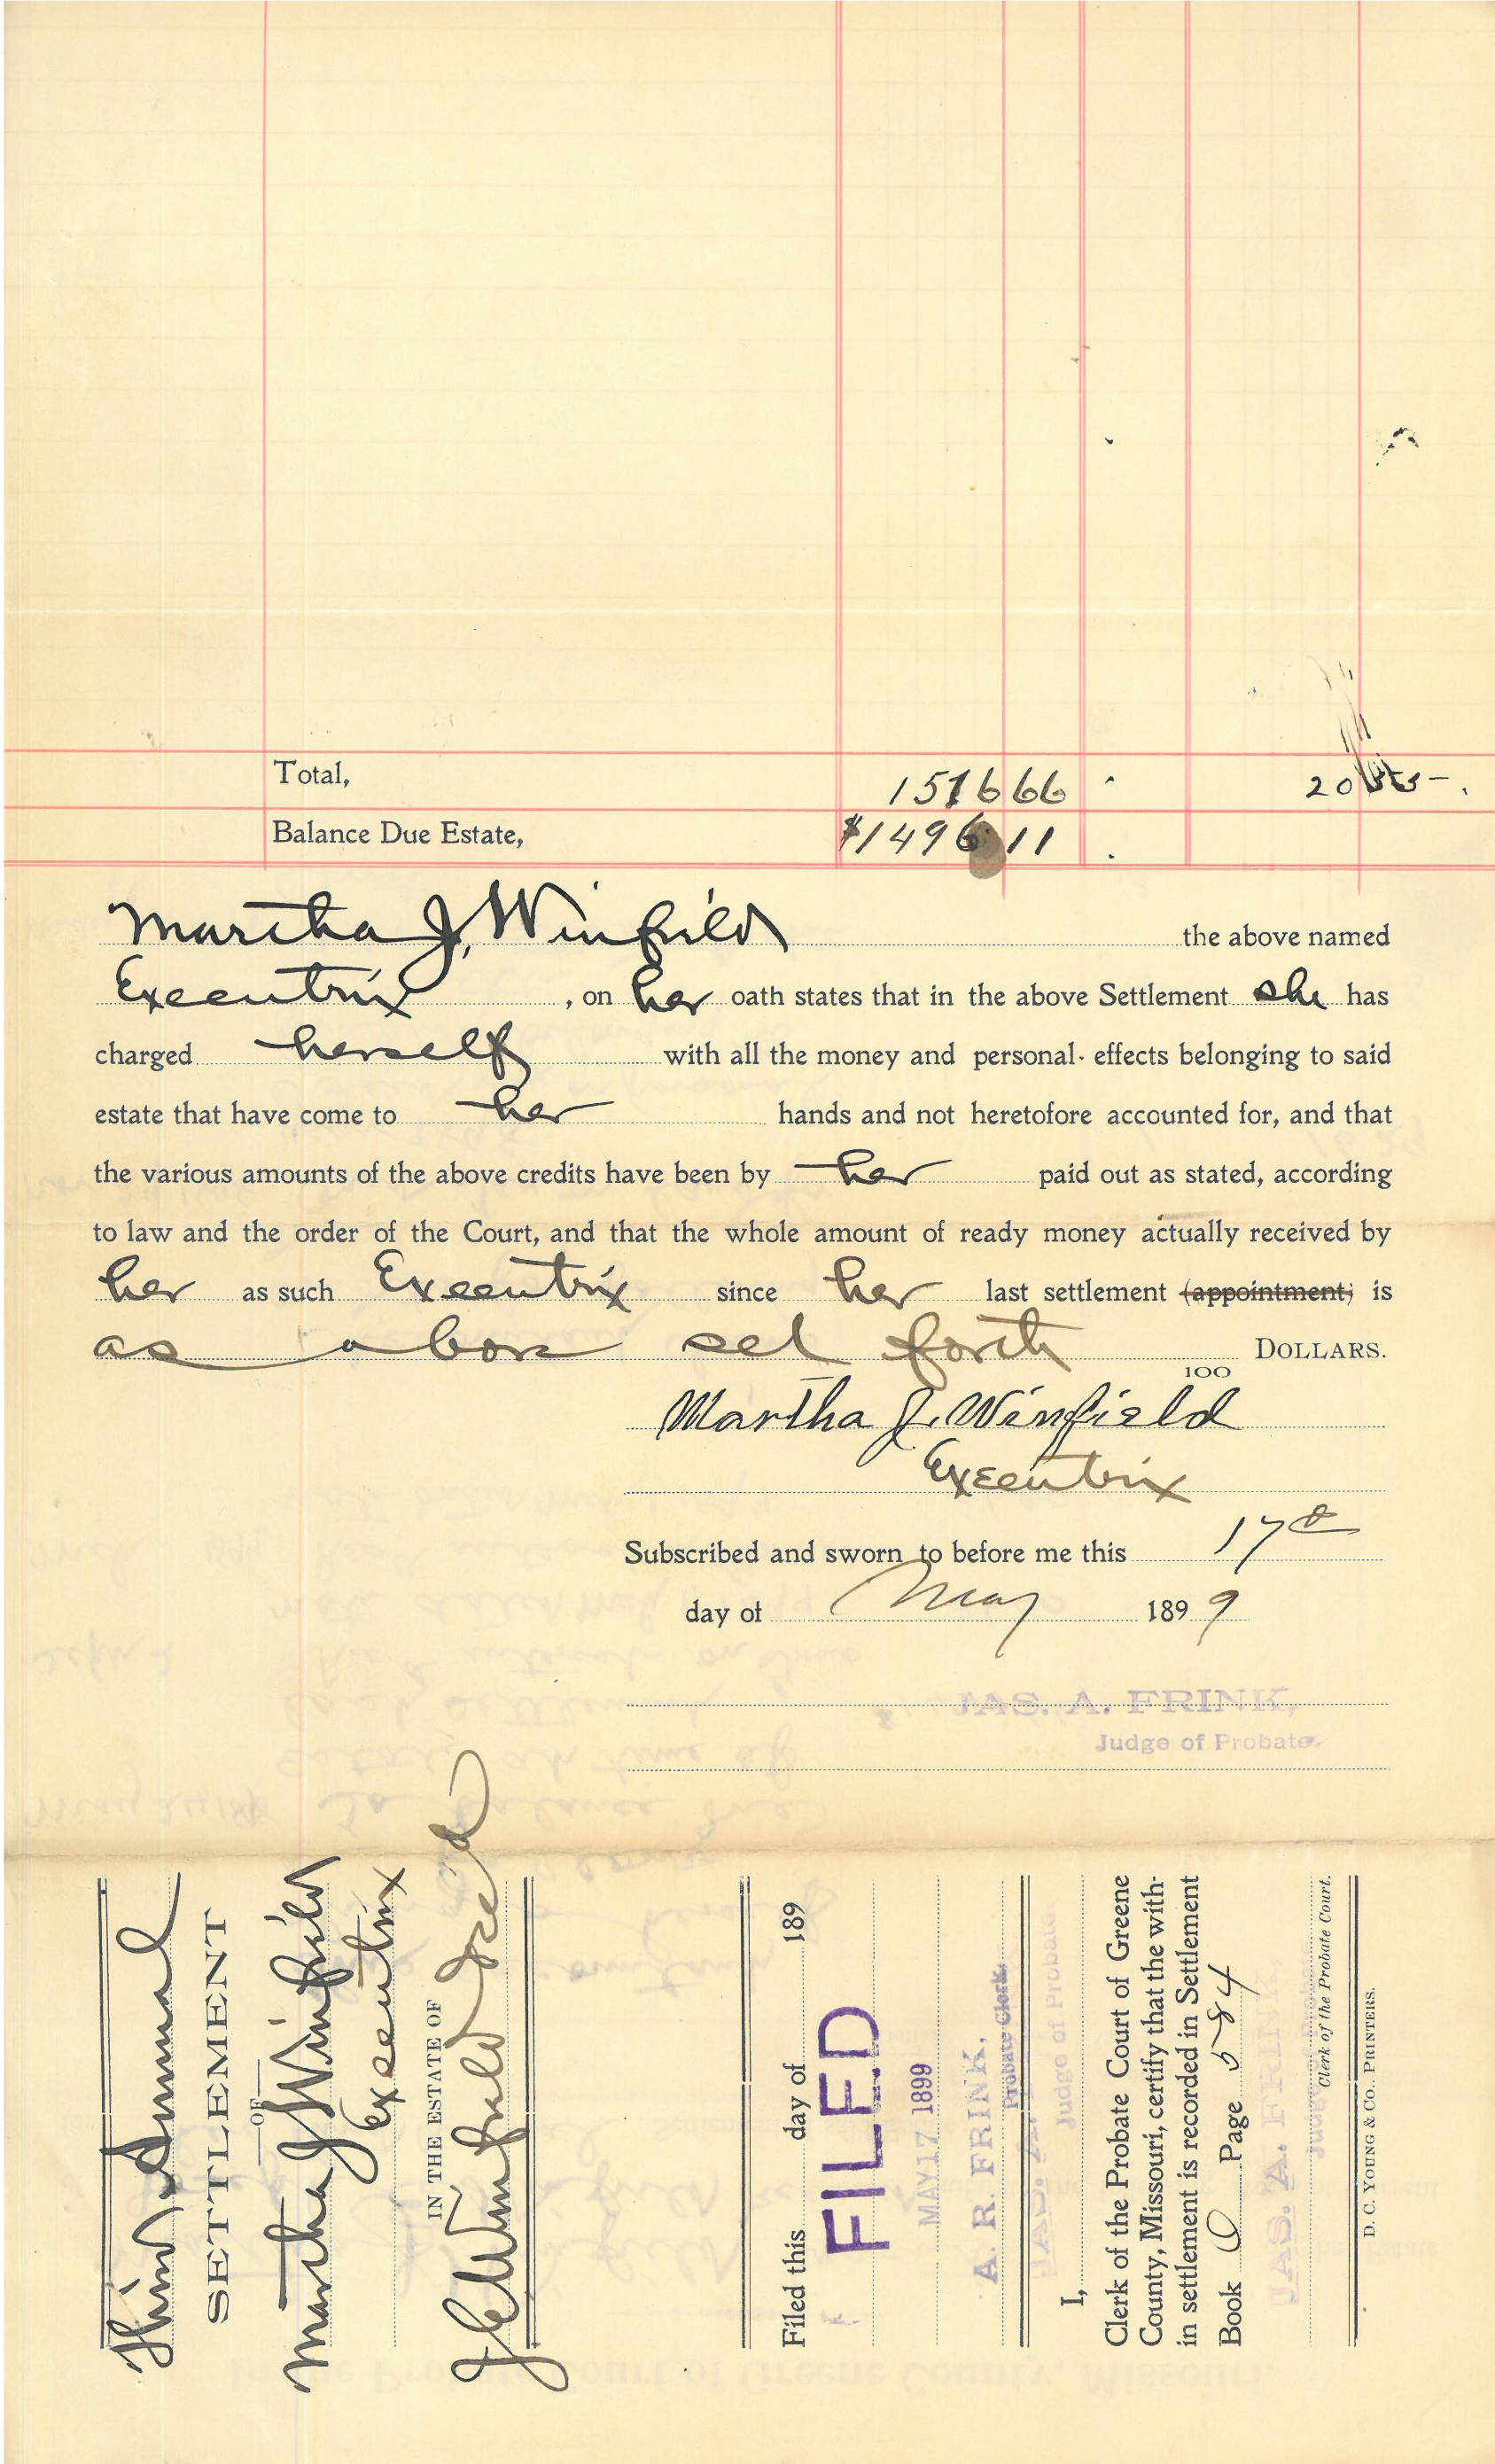 Total, 1516 66 20 
Balance Due Estate, $1496 11
Martha J. Winfield the above named
Executrix, on her oath states that in the above Settlement she has
charged herself with all the money and personal effects belonging to said
estate that have come to her hands and not heretofore accounted for, and that
the various amounts of the above credits have been by her paid out as stated, according
to law and the order of the Court, and that the whole amount of ready money actually received by
her as such Executrix since her last settlement (appointment) is
as above set forth DOLLARS.
100
Martha J. Winfield
Executrix
Subscribed and sworn to before me this 17th
day of May 1899
JAS. A. FRINK,
Judge of Probate.
Third Annual
SETTLEMENT
OF
Martha J Winfield
Executrix
IN THE ESTATE OF
Winfield Decd
Filed this day of 189
FILED
MAY 17 1899
A. R. FRINK,
Probate Clerk.
Judge of Probate
I,
Clerk of the Probate Court of Greene
County, Missouri, certify that the with-
in settlement is recorded in Settlement
Book O Page 584
JAS. A. FRINK,
Judge of Probate
Clerk of the Probate Court.
D. C. YOUNG & CO., PRINTERS.